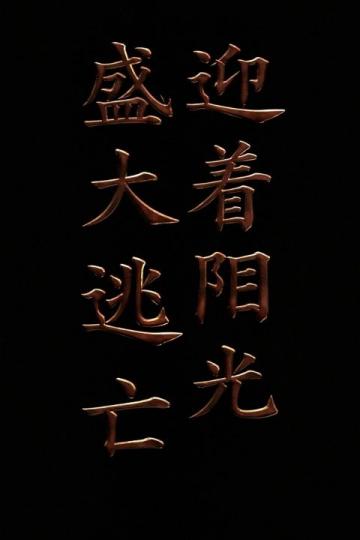 迎着阳光
盛大逃亡